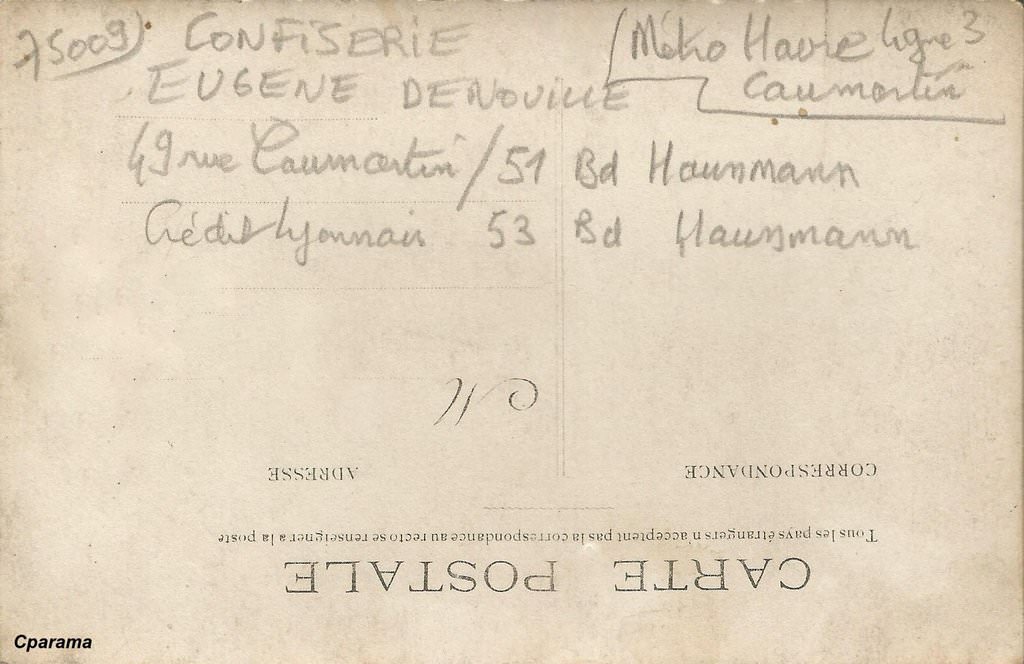 75009) CONFISERIE (Métro Havre ligne 3
EUGENE DENOUILLE Caumartin
49 rue Caumartin / 51 Bd Hausmann
Crédit Lyonnais 53 Bd Hausmann
CARTE POSTALE
Tous les pays étrangers n'acceptent pas la correspondance au recto se renseigner a la poste
CORRESPONDANCE ADRESSE
M
Cparama